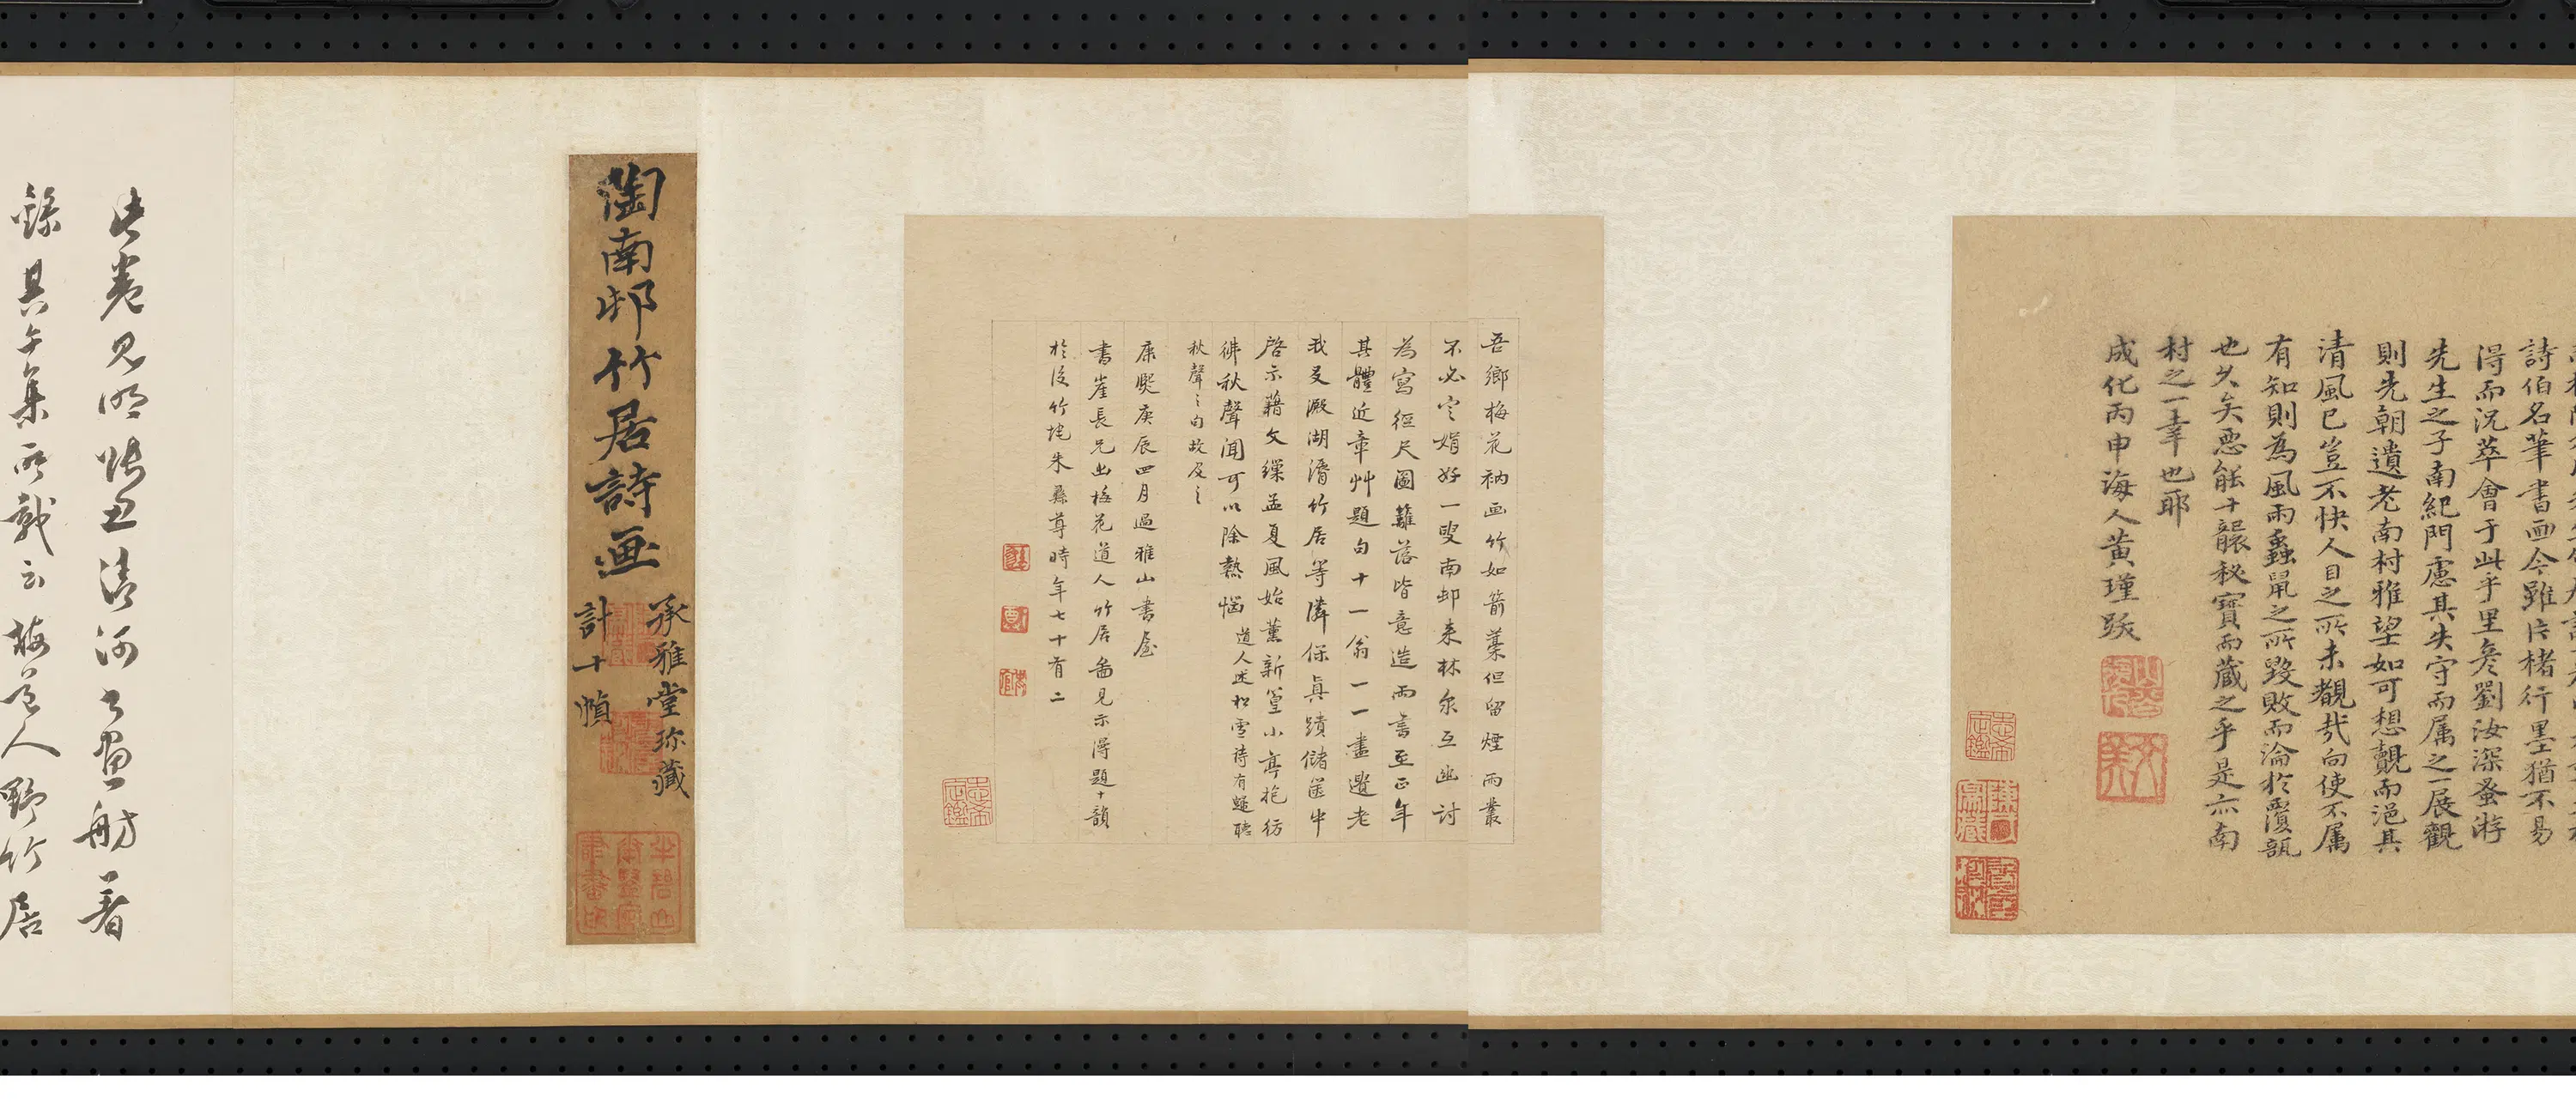 詩伯名筆書画今雖片楮行墨猶不易
得而況萃會于此乎里彥劉汝深蚤游
先生之子南紀門慮其失守而属之一展觀
則先朝遺老南村雅望如可想覿而挹其
清風已豈不快人目之所未覩哉向使不属
有知則為風雨蟲鼠之所毀敗而淪於覆瓿
也久矣惡能十襲秘寶而藏之乎是亦南
村之一幸也耶
成化丙申海人黃瑾跋
吾鄉梅花衲画竹如箭藁但留煙雨叢
不必定娟好一叟南邨来林尔互幽討
為寫徑尺圖籬落皆意造而書至正年
其體近章艸題句十一翁一一盡遺老
我友澱湖濱竹居等憐保真蹟儲篋中
啓示藉文繅孟夏風始薰新篁小亭抱彷
彿秋聲聞可以除熱惱 道人送松雪詩有蠅聽
秋聲之句故及之
康熙庚辰四月過雅山書屋
書崖長兄出梅花道人竹居畫見示得題十韻
於後竹垞朱彝尊時年七十有二
陶南邨竹居詩画
承雅堂珎藏
計十幀
此卷見明張丑清河書畫舫著
錄具午集所載云梅道人野竹居